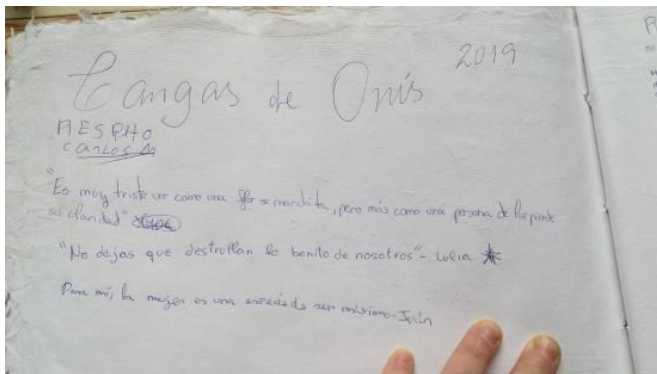 2019
Cangas de Onís
MESPHO
CARLOS A
"Es muy triste ver como una flor se marchita, pero más como una persona de las pierde
su claridad"
"No dejas que destrollan lo bonito de nosotros" - Lolia
Para mí, la mujer es una especie de ser máximo - Iván